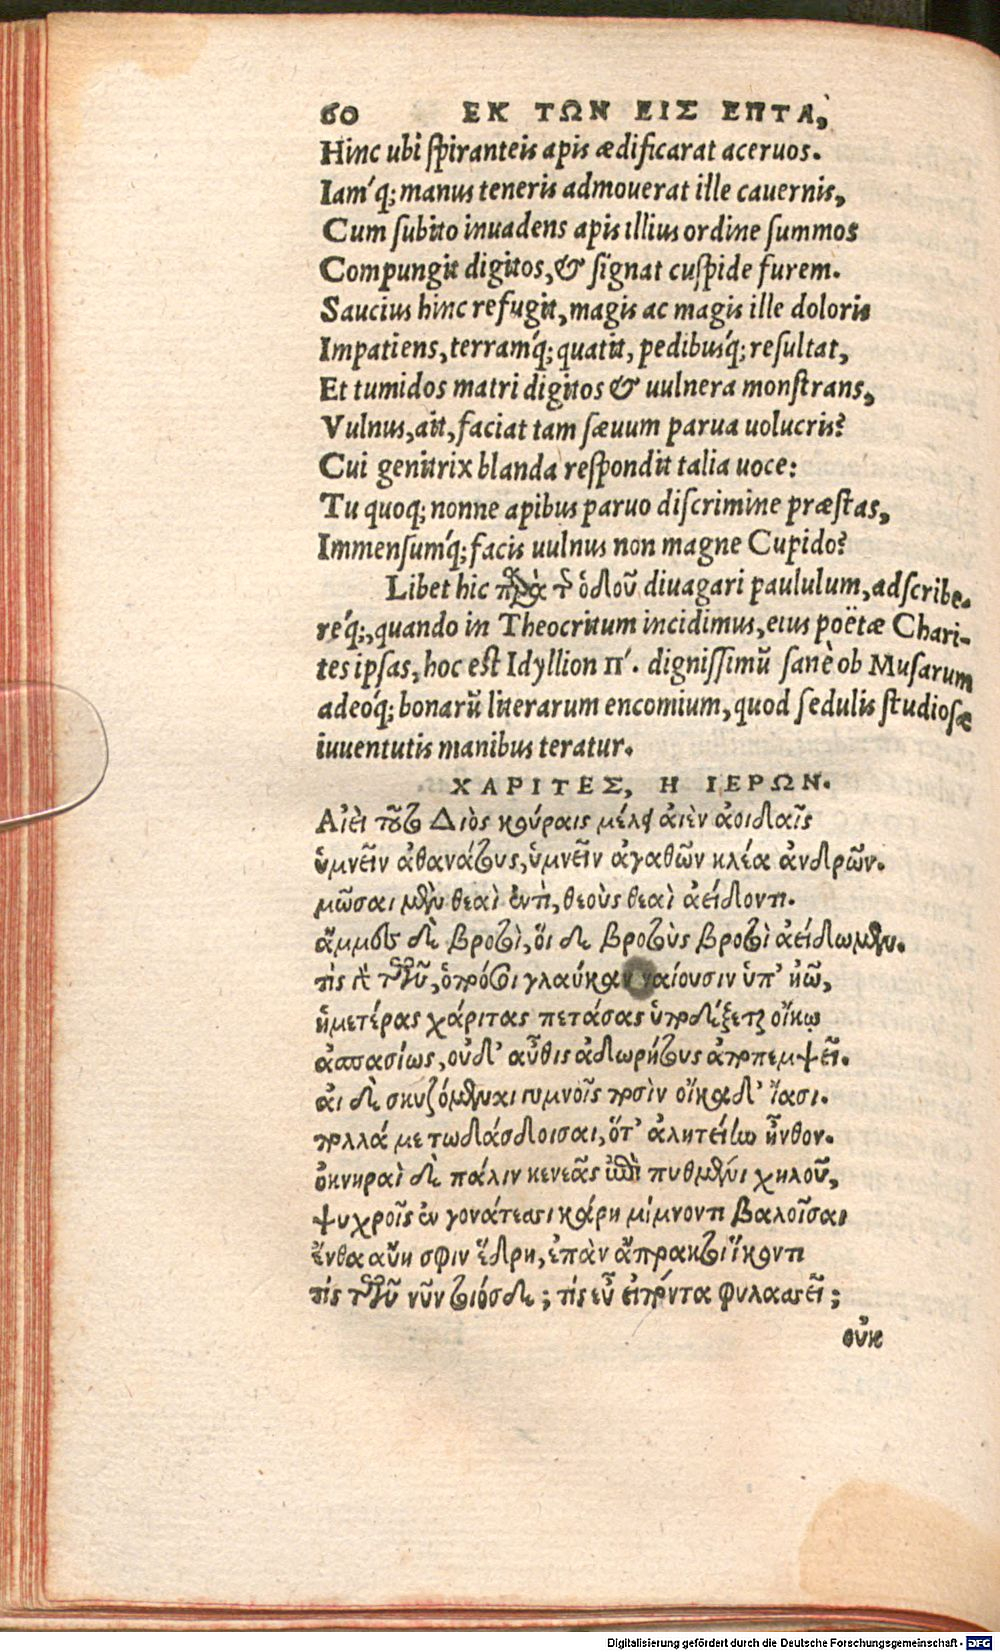 60 ΕΚ ΤΩΝ ΕΙΣ ΕΠΤΑ,
Hinc ubi spiranteis apis ædificarat aceruos.
Iam'q; manus teneris admouerat ille cauernis,
Cum subito inuadens apis illius ordine summos
Compungit digitos, & signat cuspide furem.
Saucius hinc refugit, magis ac magis ille doloris
Impatiens, terram'q; quatit, pedibus'q; resultat,
Et tumidos matri digitos & uulnera monstrans,
Vulnus, ait, faciat tam sæuum parua uolucris?
Cui genitrix blanda respondit talia uoce:
Tu quoq; nonne apibus paruo discrimine præstas,
Immensum'q; facis uulnus non magne Cupido?
Libet hic παρὰ τ ὁδοῦ diuagari paululum, adscribe-
re'q;, quando in Theocritum incidimus, eius poëtæ Chari-
tes ipsas, hoc est Idyllion π'. dignissimũ sanè ob Musarum
adeó'q; bonarũ literarum encomium, quod sedulis studiosæ
iuuentutis manibus teratur.
ΧΑΡΙΤΕΣ, Η ΙΕΡΩΝ.
Αἰεὶ τοῦτο Διὸς κούραις μέλει αἰὲν ἀοιδαῖς
ὑμνεῖν ἀθανάτους, ὑμνεῖν ἀγαθῶν κλέα ἀνδρῶν.
μῶσαι μὲν θεαὶ ἐντὶ, θεοὺς θεαὶ ἀείδοντι.
ἄμμες δὲ βροτοὶ, ὅι δε βροτοὺς βροτοὶ ἀείδωμεν.
τίς τῶν, ὁπόσοι γλαύκαν ναίουσιν ὑπ' ἠῶ,
ἡμετέρας χάριτας πετάσας ὑποδέξεται οἴκῳ
ἀσπασίως, οὐδ' αὖθις ἀδωρήτους ἀποπεμψεῖ.
αἱ δὲ σκυζόμεναι γυμνοῖς ποσὶν οἴκαδ' ἴασι.
πολλά με τωθάσδοισαι, ὅτ' ἀλητείην ἦνθον.
ὀκνηραὶ δὲ πάλιν κενεᾶς ἐπὶ πυθμένι χηλοῦ,
ψυχροῖς ἐν γονάτεσσι κάρη μίμνοντι βαλοῖσαι
ἔνθα αὔη σφιν ἕδρη, ἐπὰν ἄπρακτοι ἵκοντι
τίς τῶν νῦν τοιόσδε; τίς εὖ εἰπόντα φυλασσεῖ;
οὐκ
Digitalisierung gefördert durch die Deutsche Forschungsgemeinschaft - DFG